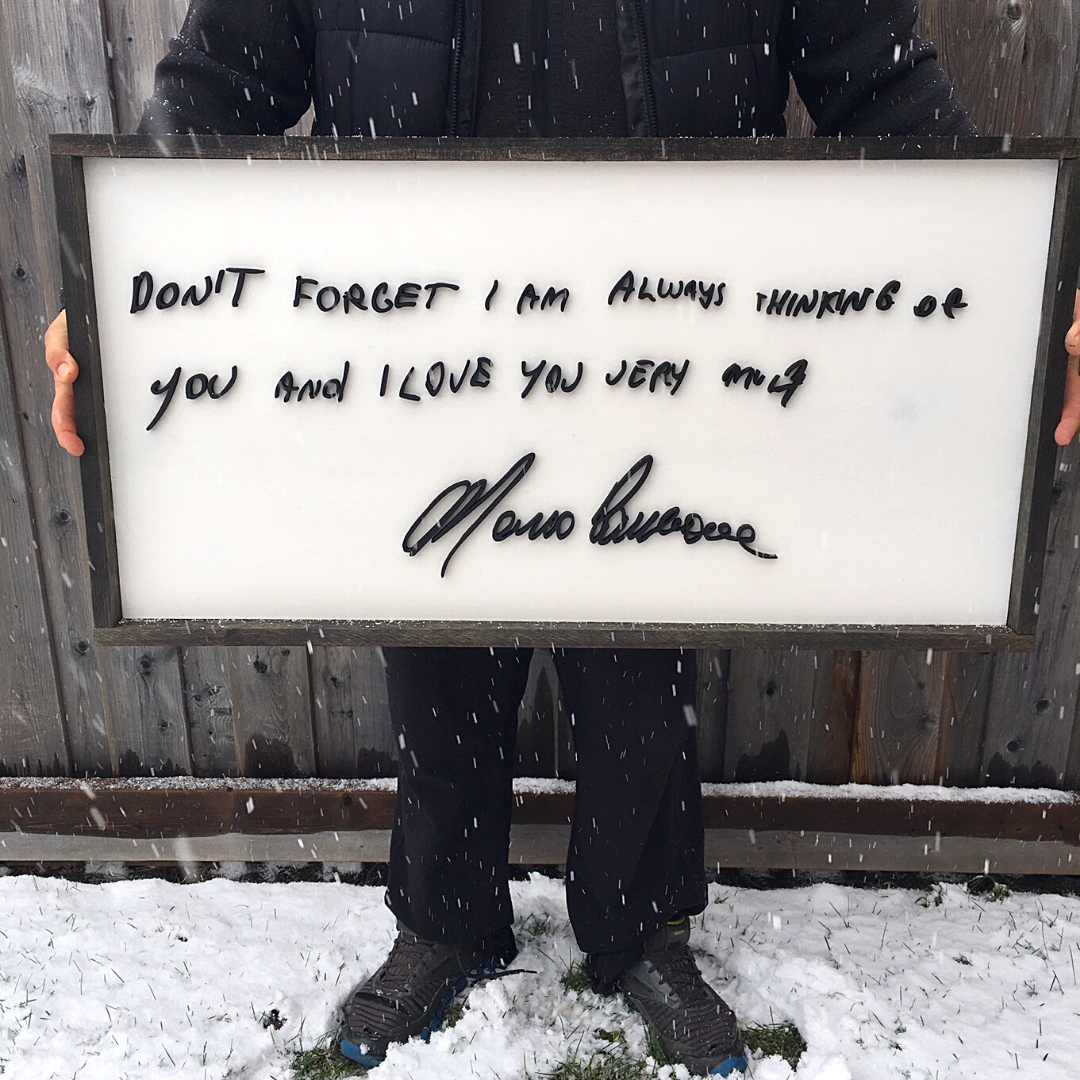 DON'T FORGET I AM ALWAYS THINKING OF
YOU AND I LOVE YOU VERY